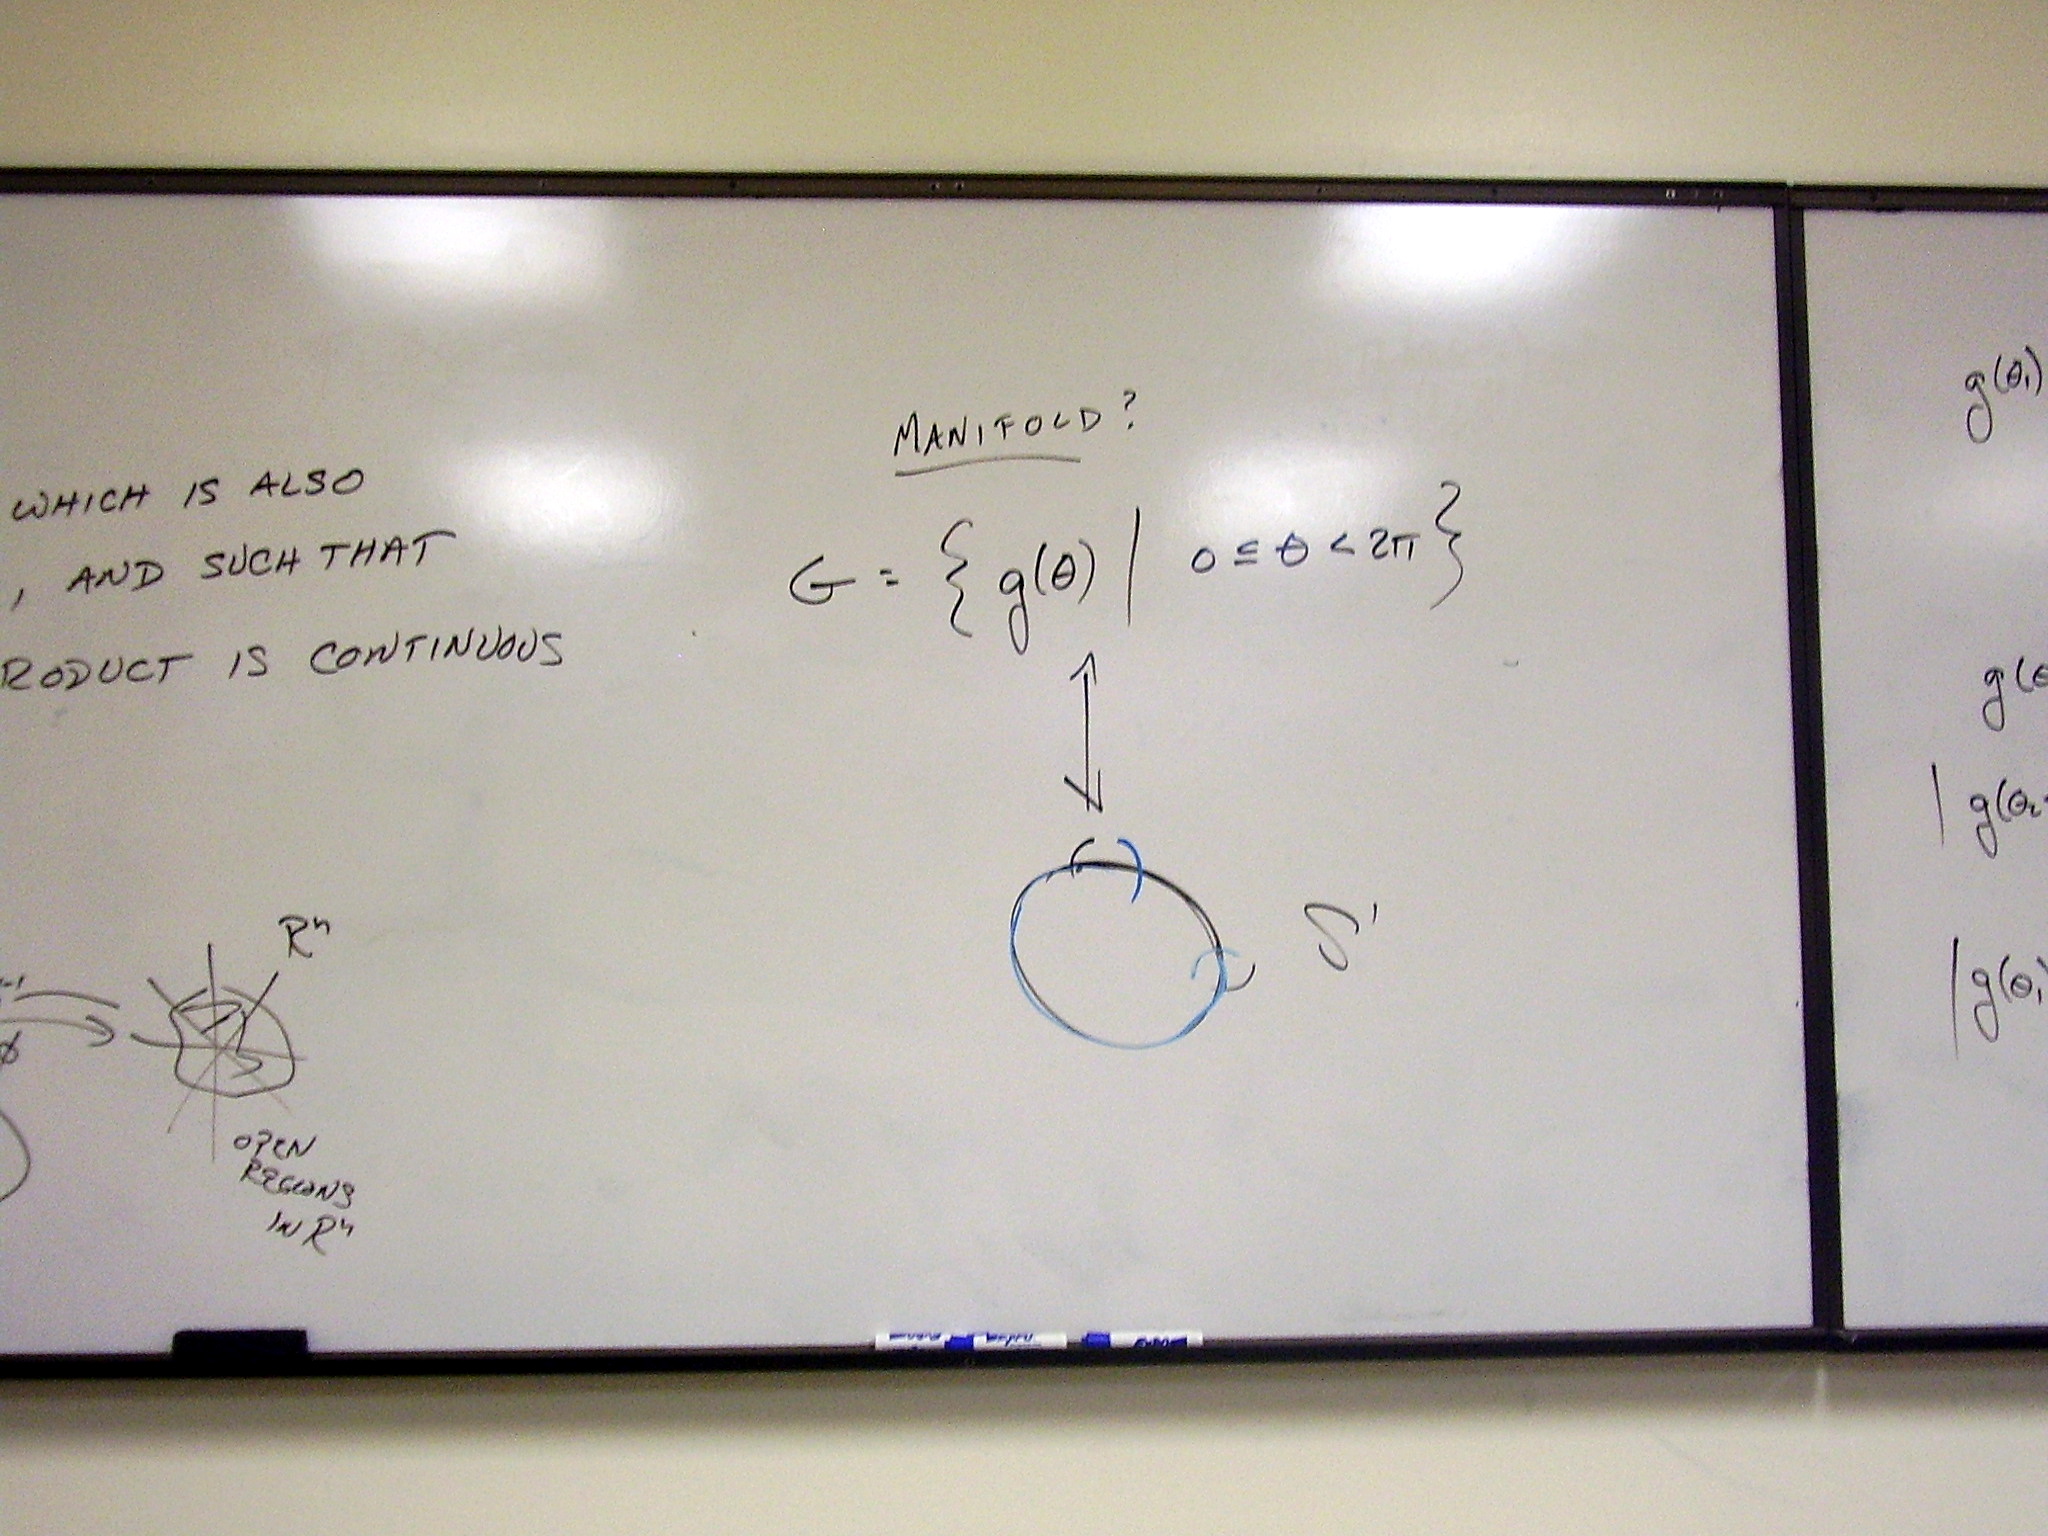 WHICH IS ALSO
, AND SUCH THAT
RODUCT IS CONTINUOUS
Rⁿ
φ
OPEN
REGIONS
IN Rⁿ
MANIFOLD?
G = { g(θ) | 0 ≤ θ < 2π }
S¹
g(θ₁)
g(θ
| g(θ₂
| g(θ₁